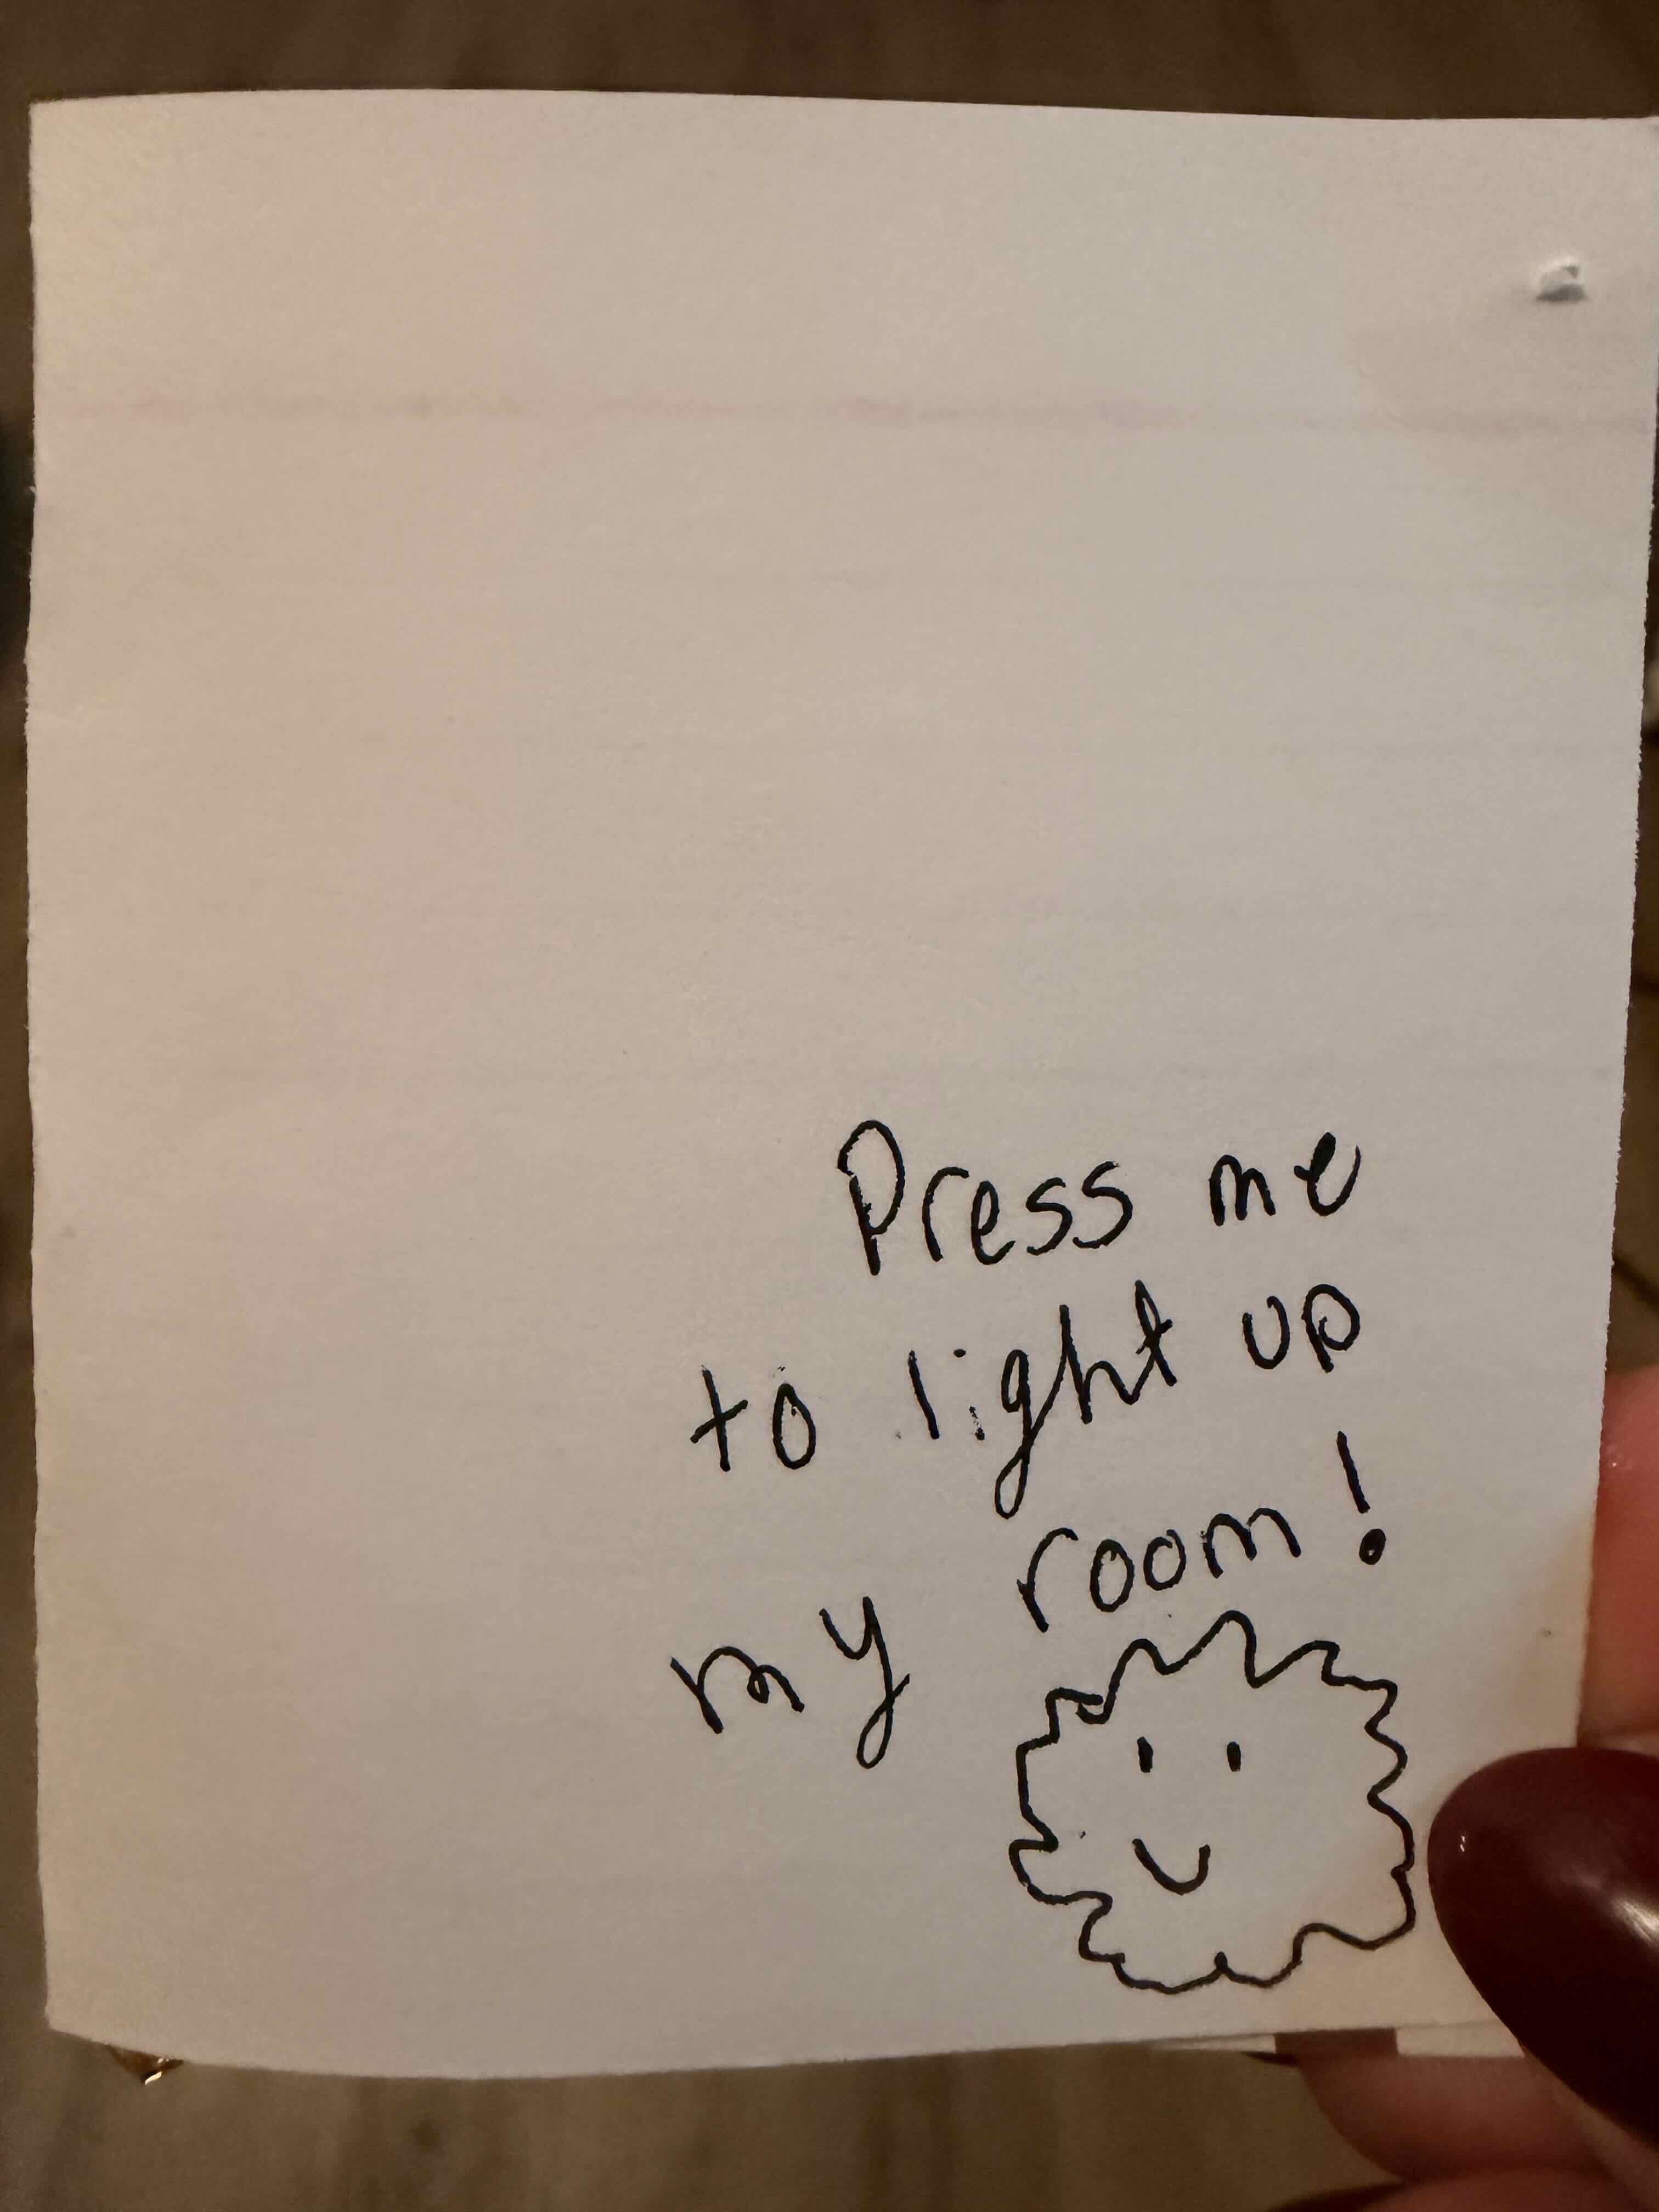 Press me
to light up
my room!